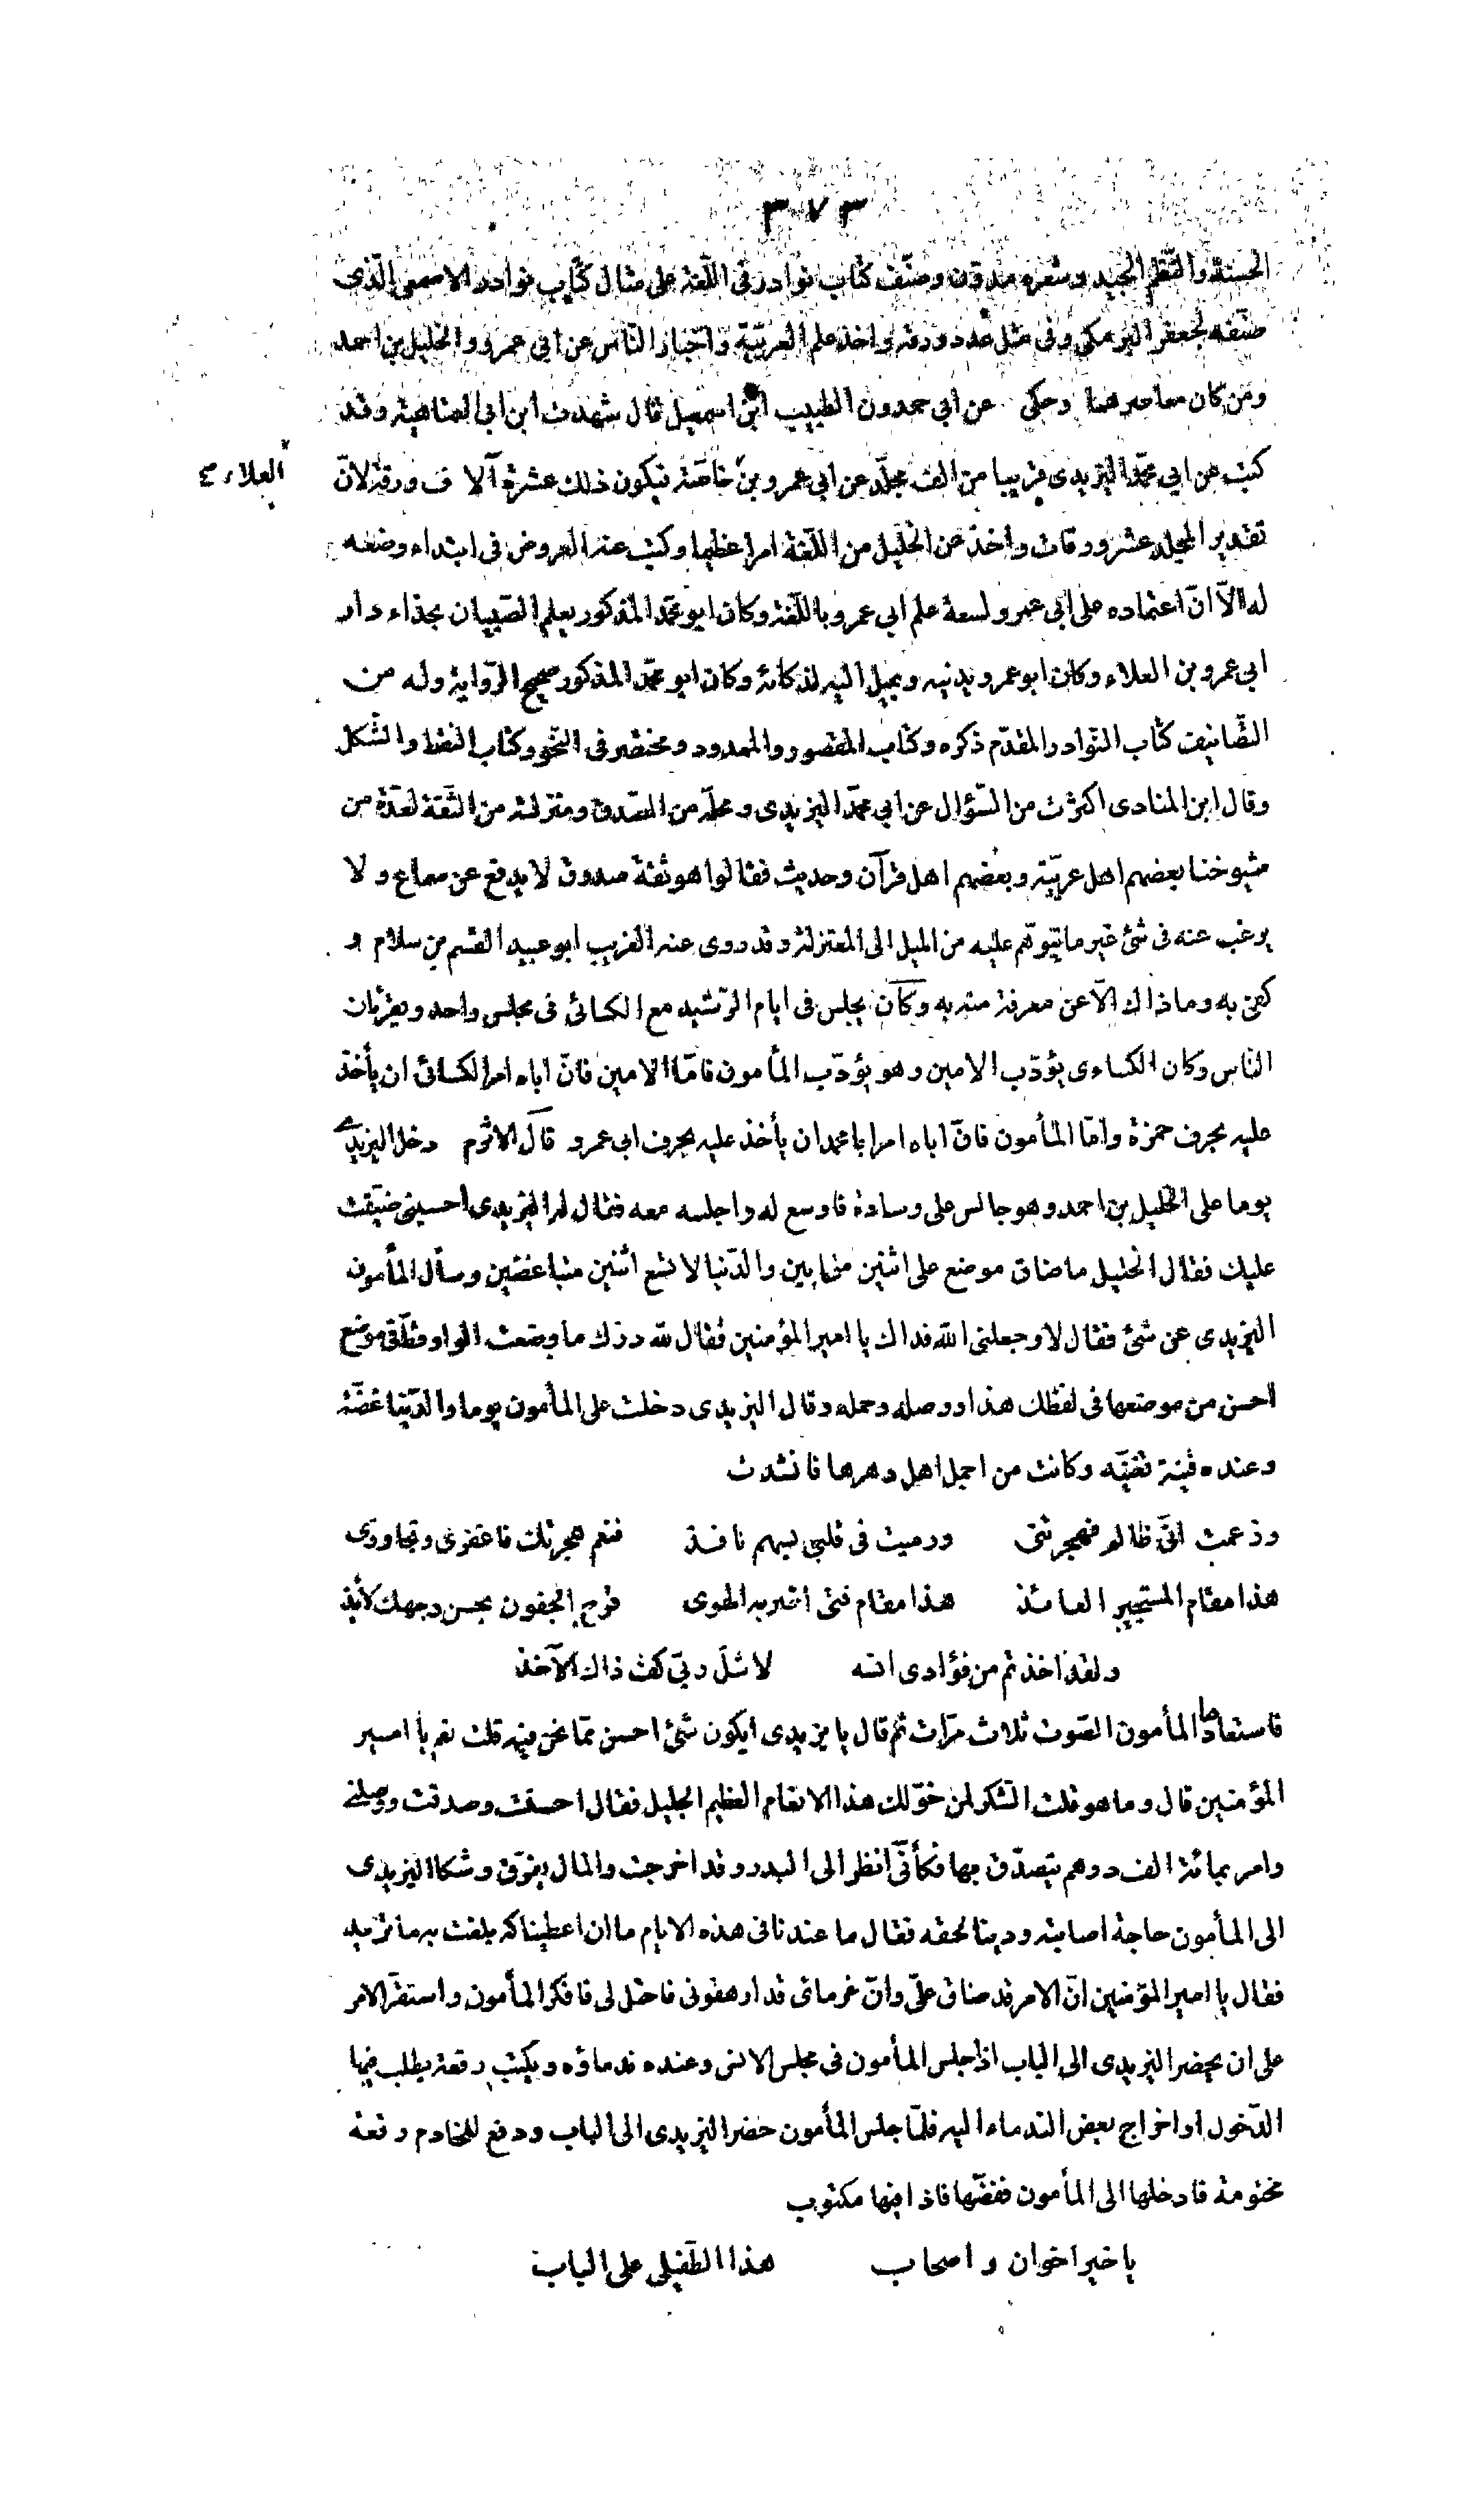 ٣٧٣
الحسنة والنّظم الجيد وشعره مدوّن وصنّف كتاب نوادر فى اللّغة على مثال كتاب نوادر الاصمعى الّذى
صنّفه لجعفر البرمكى وفى مثل عدد ورقه واخذ علم العربيّة واخبار النّاس عن ابى عمرو والخليل بن احمد
ومن كان معاصرهما وحكى عن ابى حمدون الطبيب ابن اسمعيل قال شهدت ابن ابى العتاهية وقد
كتب عن ابى محمّد اليزيدى قريبا من الف مجلّد عن ابى عمرو بن خاصّة فيكون ذلك عشرة آلاف ورقة لانّ
العلاء
تقدير المجلد عشر ورقات واخذ عن الخليل من اللّغة امرا عظيما وكتب عنه العروض فى ابتداء وضعه
له الّا انّ اعتماده على ابى عمرو لسعة علم ابى عمرو باللّغة وكان ابو محمّد المذكور يعلم الصّبيان بحذاء دار
ابى عمرو بن العلاء وكان ابو عمرو يدنيه ويميل اليه لذكائه وكان ابو محمّد المذكور صحيح الرّواية وله من
التّصانيف كتاب النّوادر المقدّم ذكره وكتاب المقصور والممدود ومختصر فى النّحو وكتاب النقط والشّكل
وقال ابن المنادى اكثرت من السّؤال عن ابى محمّد اليزيدى ومحلّه من الصّدق ومنزلته من الثّقة لعدّة من
شيوخنا بعضهم اهل عربيّة وبعضهم اهل قرآن وحديث فقالوا هو ثقة صدوق لا يدفع عن سماع ولا
يرغب عنه فى شئ غير ما يتوهّم عليه من الميل الى المعتزلة وقد روى عنه الغريب ابو عبيد القسم بن سلام و
كفى به وما ذاك الّا عن معرفة منه به وكان يجلس فى ايام الرّشيد مع الكسائى فى مجلس واحد ويقرئان
الناس وكان الكساءى يؤدّب الامين وهو يؤدّب المأمون فامّا الامين فانّ اباه امر الكسائى ان يأخذ
عليه بحرف حمزة وامّا المأمون فانّ اباه امر ابا محمد ان يأخذ عليه بحرف ابى عمرو قال الاثرم دخل اليزيدى
يوما على الخليل بن احمد وهو جالس على وسادة فاوسع له واجلسه معه فقال له اليزيدى احسبنى ضيّقت
عليك فقال الخليل ما ضاق موضع على اثنين متحابين والدّنيا لا تسع اثنين متباغضين وسأل المأمون
اليزيدى عن شئ فقال لا وجعلنى الله فداك يا امير المؤمنين فقال لله درّك ما وضعت الواو قطّ فى موضع
احسن من موضعها فى لفظك هذا ووصله وحمله وقال اليزيدى دخلت على المأمون يوما والدّنيا غضّة
وعنده قينة تغنّيه وكانت من اجمل اهل دهرها فانشدت
وزعمت انّى ظالم فهجرتنى ورميت فى قلبى بسهم نافذ فنعم هجرتك فاغفرى وتجاوزى
هذا مقام المستجير العائذ هذا مقام فتى اضرّ به الهوى قرح الجفون بحسن وجهك لائذ
ولقد اخذتم من فؤادى انسه لا شلّ ربّى كفّ ذاك الآخذ
فاستعادها المأمون الصّوت ثلاث مرّات ثمّ قال يا يزيدى ايكون شئ احسن ممّا نحن فيه قلت نعم يا امير
المؤمنين قال وما هو قلت الشّكر لمن خوّلك هذا الانعام العظيم الجليل فقال احسنت وصدقت ووصلنى
وامر بمائة الف درهم يتصدّق بها فكأنّى انظر الى البدر وقد اخرجت والمال يفرّق وشكا اليزيدى
الى المأمون حاجة اصابته ودينا لحقه فقال ما عندنا فى هذه الايام ما ان اعطيناكه بلغت به ما تريد
فقال يا امير المؤمنين انّ الامر قد ضاق علىّ وانّ غرمائى قد ارهقونى فاحتل لى فافكر المأمون واستقرّ الامر
على ان يحضر اليزيدى الى الباب اذا جلس المأمون فى مجلس الانس وعنده ندماؤه ويكتب رقعة يطلب فيها
الدّخول او اخراج بعض النّدماء اليه فلمّا جلس المأمون حضر اليزيدى الى الباب ودفع للخادم رقعة
مختومة فادخلها الى المأمون ففضّها فاذا فيها مكتوب
يا خير اخوان واصحاب هذا الطّفيلى على الباب